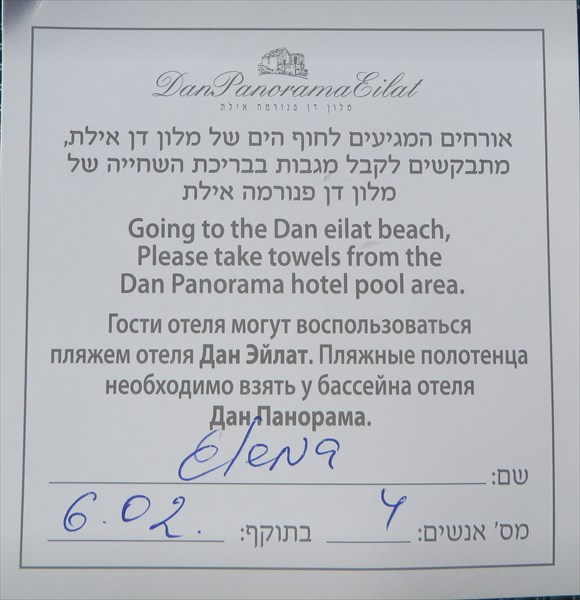 DanPanoramaEilat
מלון דן פנורמה אילת
אורחים המגיעים לחוף הים של מלון דן אילת,
מתבקשים לקבל מגבות בבריכת השחייה של
מלון דן פנורמה אילת
Going to the Dan eilat beach,
Please take towels from the
Dan Panorama hotel pool area.
Гости отеля могут воспользоваться
пляжем отеля Дан Эйлат. Пляжные полотенца
необходимо взять у бассейна отеля
Дан Панорама.
שם: Elena
מס' אנשים: 4 בתוקף: 6.02.